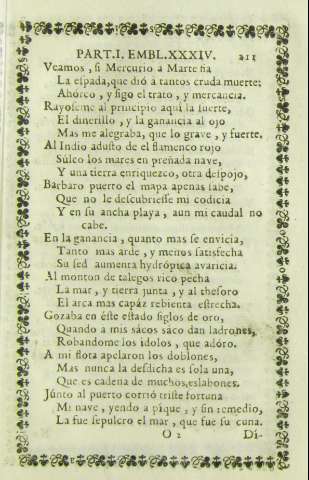 PART.I. EMBL.XXXIV. 211
Veamos, ſi Mercurio a Marte ſia
La eſpada, que diò a tantos cruda muerte;
Ahòrco, y ſigo el trato, y mercancia.
Rayoſeme al principio aqui la ſuerte,
El dinerillo, y la ganancia al ojo
Mas me alegraba, que lo grave, y fuerte.
Al Indio aduſto de el flamenco rojo
Sùlco los mares en preñada nave,
Y una tierra enriquezco, otra deſpojo,
Barbaro puerto el mapa apenas ſabe,
Que no le deſcubrieſſe mi codicia
Y en ſu ancha playa, aun mi caudal no
cabe.
En la ganancia, quanto mas ſe envicia,
Tanto mas arde, y menos ſatisfecha
Su ſed aumenta hydrópica avaricia.
Al monton de talegos rico pecha
La mar, y tierra junta, y al theſoro
El arca mas capáz rebienta eſtrecha.
Gozaba en éſte eſtado ſiglos de oro,
Quando a mis sácos sáco dan ladrones,
Robandome los idolos, que adóro.
A mi flota apelaron los doblones,
Mas nunca la deſdicha es ſola una,
Que es cadena de muchos, eslabones.
Júnto al puerto corriò triſte fortuna
Mi nave, yendo a pique, y ſin remedio,
La fue ſepulcro el mar, que fue ſu cuna.
O 2 Di-